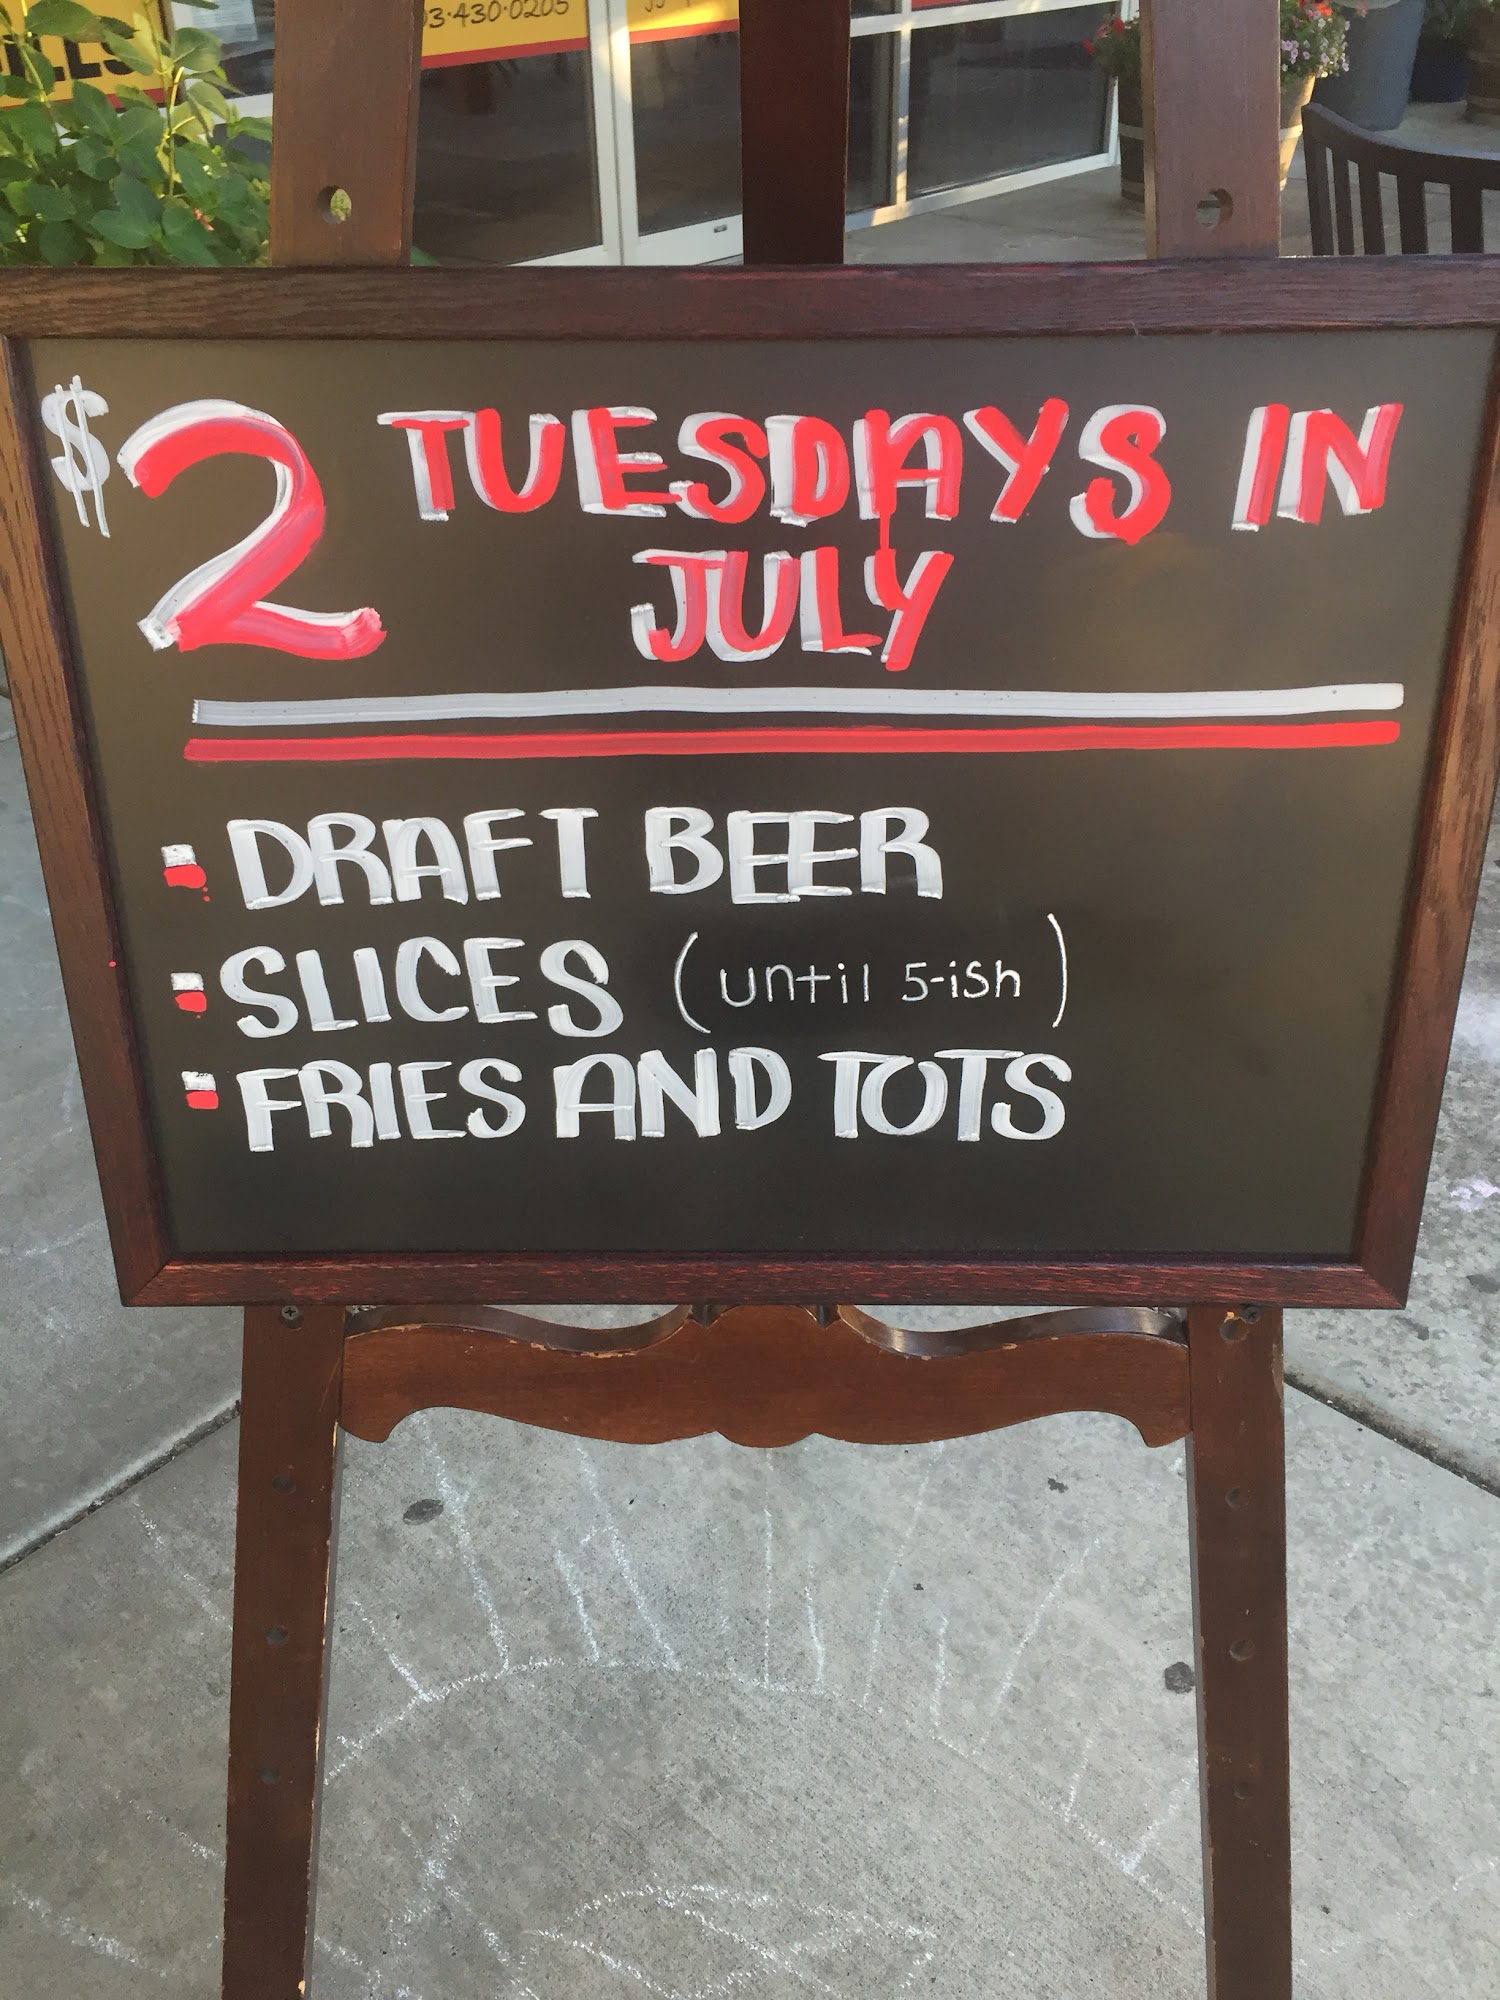 03·430·0205
$2 TUESDAYS IN
JULY
DRAFT BEER
SLICES (until 5-ish)
FRIES AND TOTS